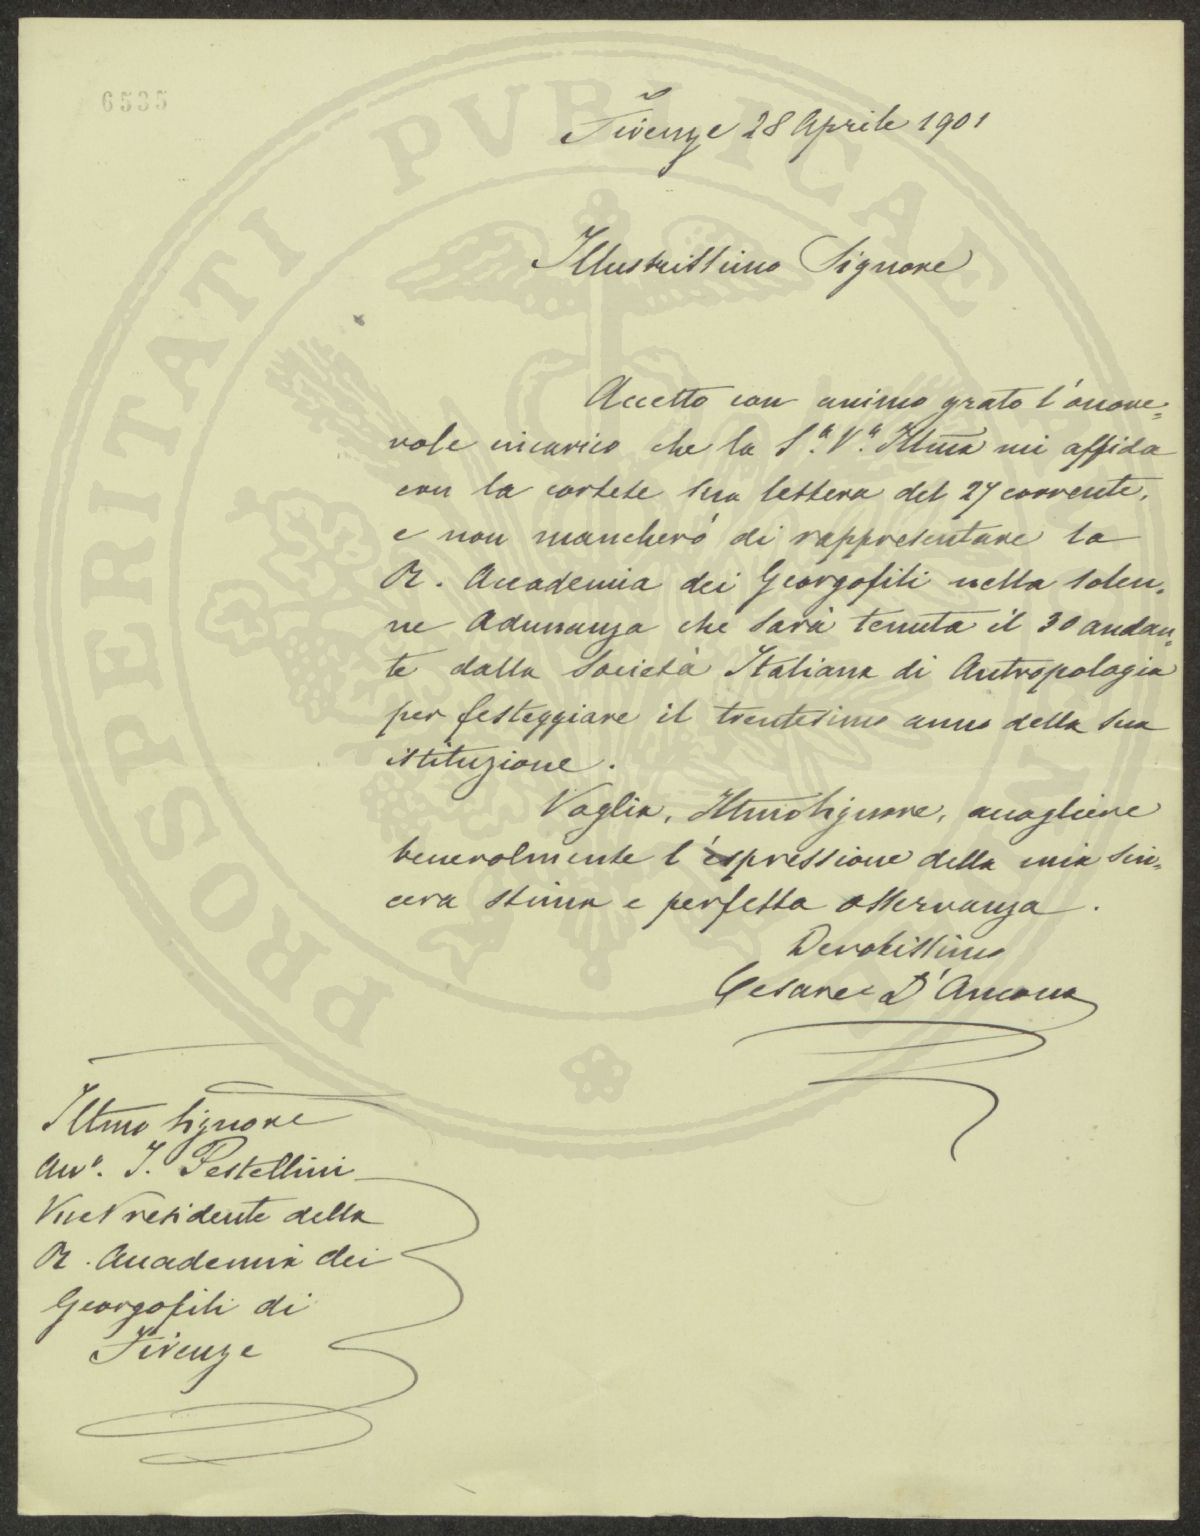 6535
Firenze 28 Aprile 1901
Illustrissimo Signore
Accetto con animo grato l'onore=
vole incarico che la S.ª V.ª Illma mi affida
con la cortese sua lettera del 27 corrente,
e non mancherò di rappresentare la
R. Accademia dei Georgofili nella solen=
ne Adunanza che sarà tenuta il 30 andan=
te dalla Società Italiana di Antropologia
per festeggiare il trentesimo anno della sua
istituzione.
Voglia, Illmo Signore, accogliere
benevolmente l'espressione della mia sin=
cera stima e perfetta osservanza.
Devotissimo
Cesare D'Ancona
Illmo Signore
Avv°. I. Pestellini
Vice Presidente della
R. Accademia dei
Georgofili di
Firenze
PROSPERITATI PVBLICAE